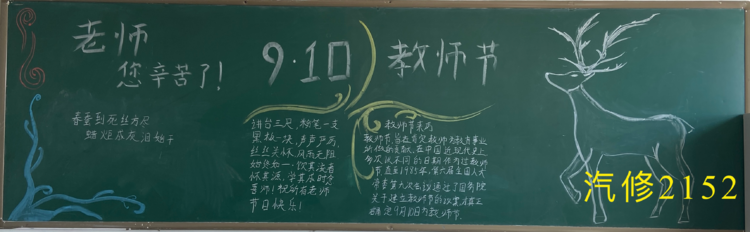 老师
您辛苦了!
9·10
教师节
春蚕到死丝方尽
蜡炬成灰泪始干
讲台三尺,粉笔一支
黑板一块,声声严厉,
丝丝关怀,风雨无阻
始终如一,饮其流者
怀其源,学其成时念
吾师!祝所有老师
节日快乐!
教师节来历
教师节,旨在肯定教师为教育事业
所做的贡献。在中国近现代史上
多次以不同的日期作为过教师
节,直至1985年,第六届全国人大
常委第九次会议通过了国务院
关于建立教师节的议案才真正
确定9月10日为教师节
汽修2152